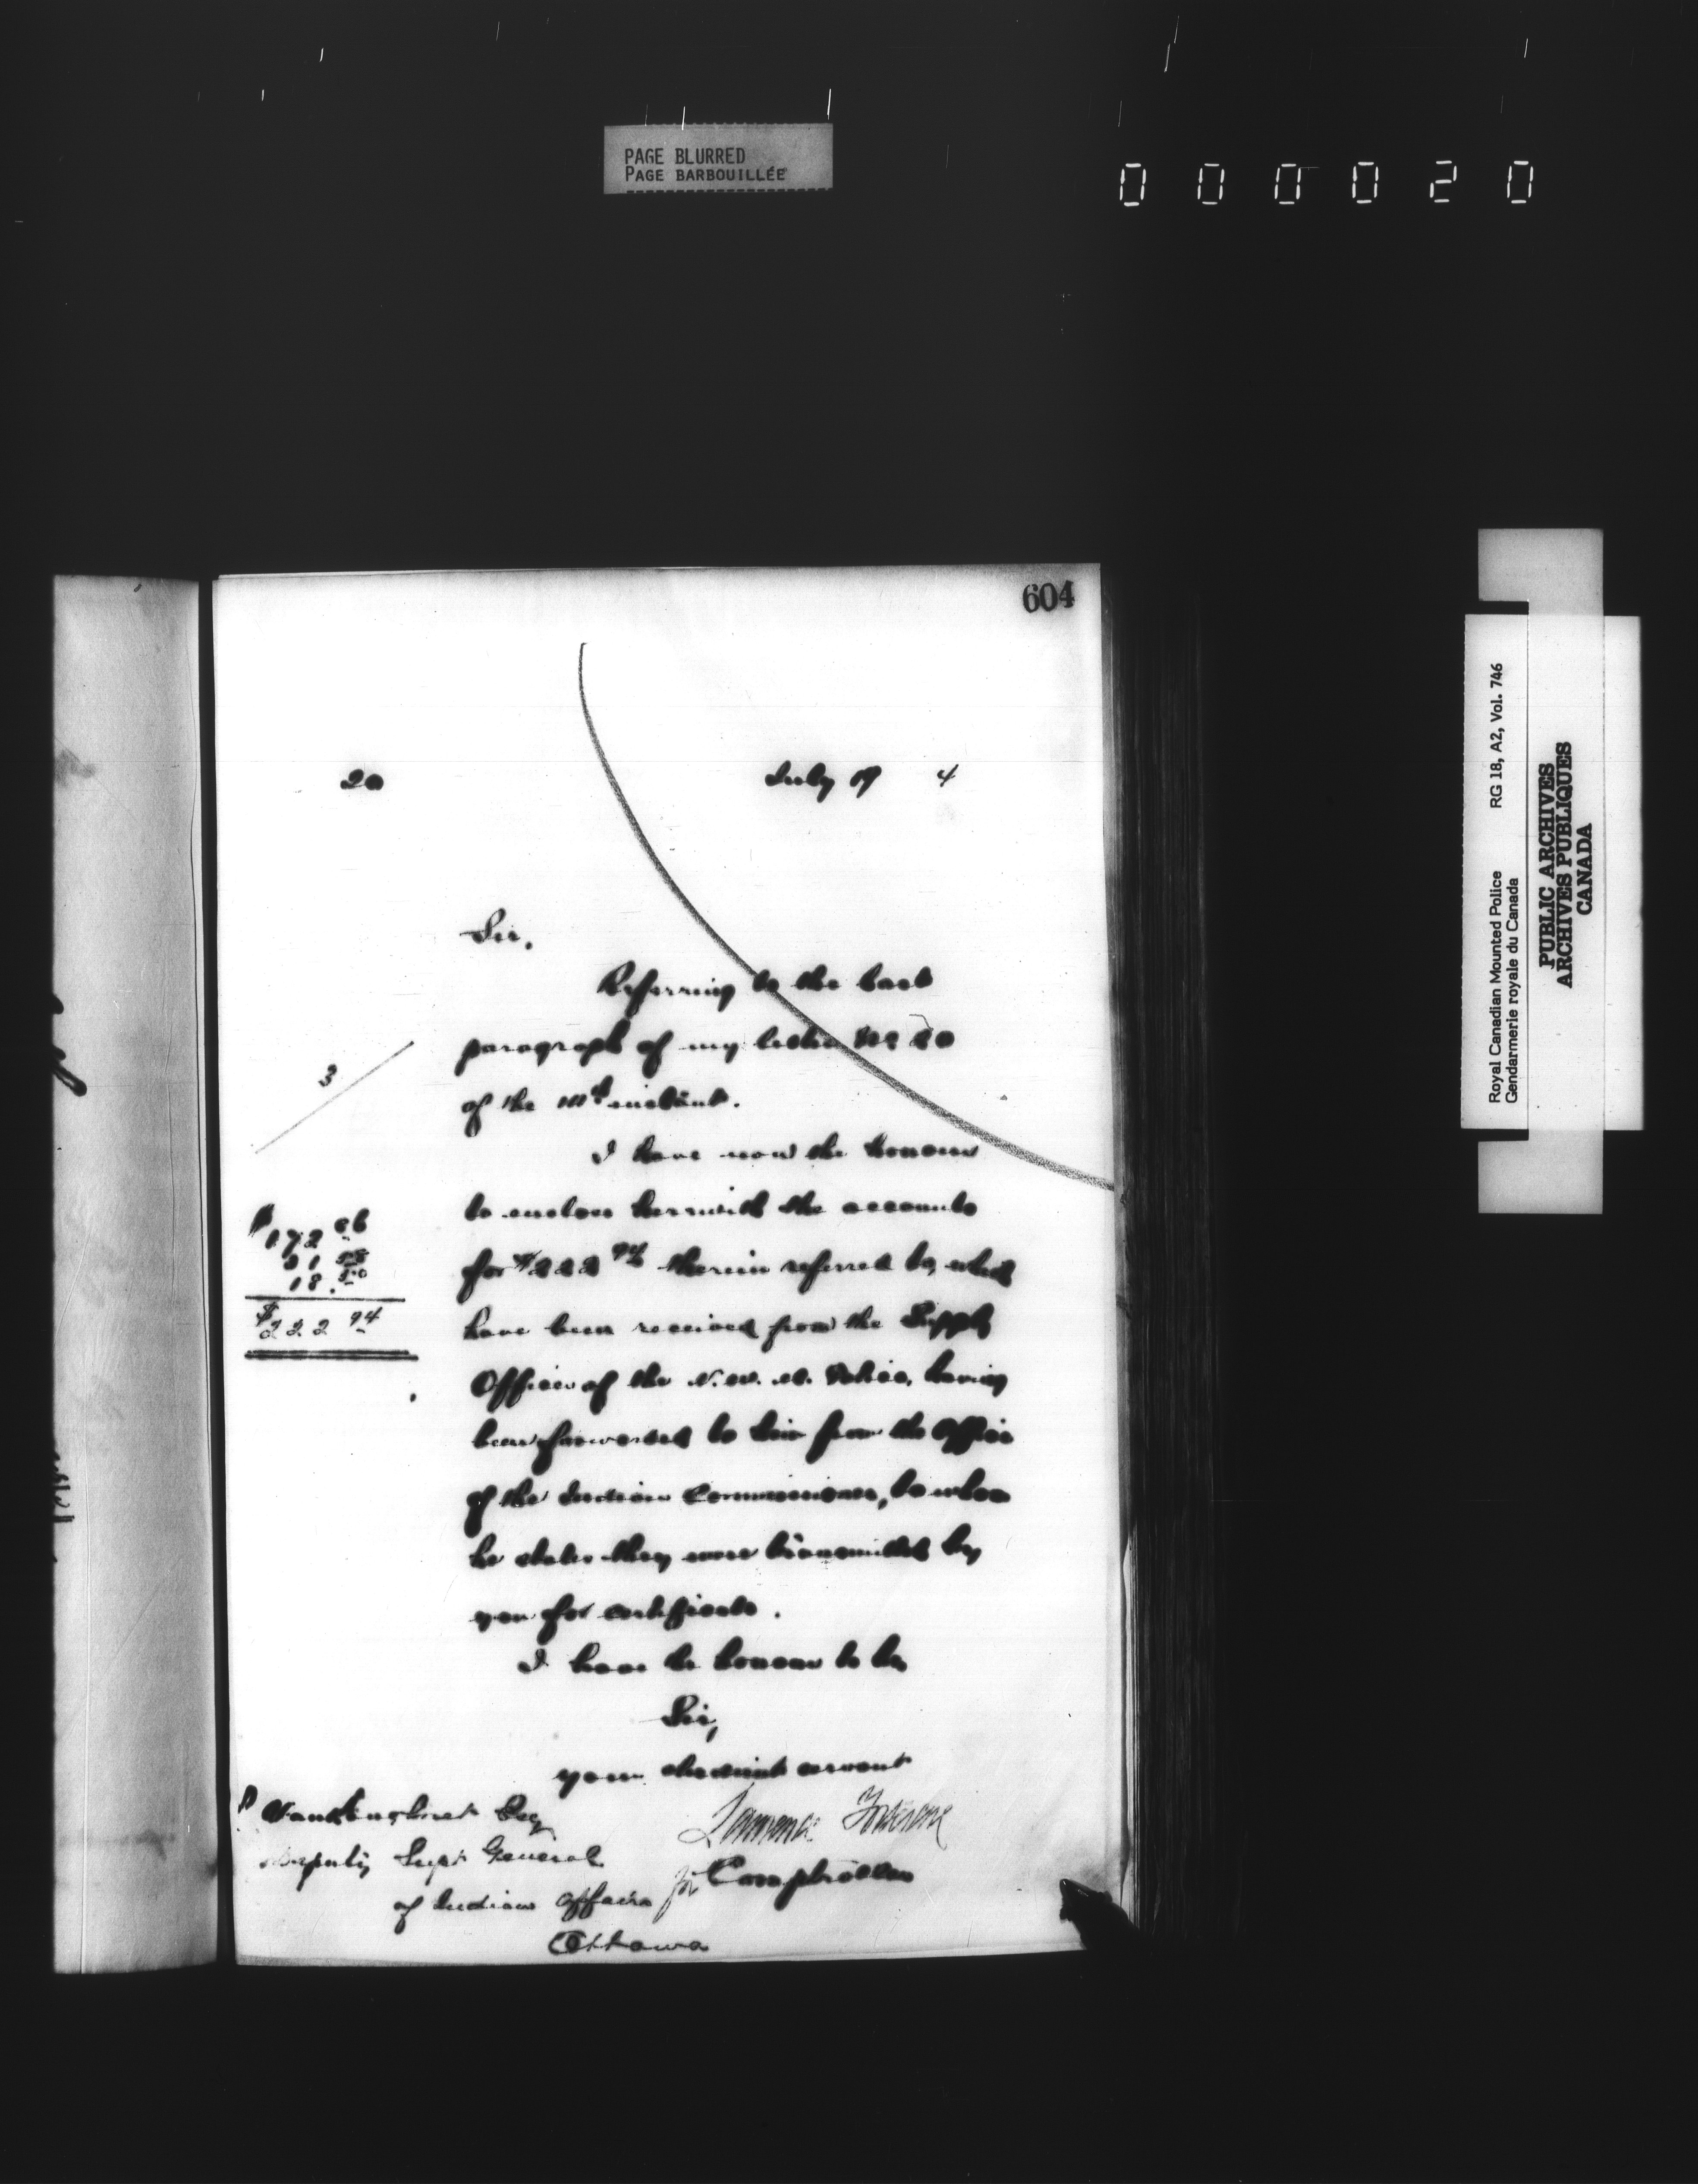 PAGE BLURRED
PAGE BARBOUILLÉE
000020
604
20 July 19 4
Sir,
Referring to the last
paragraph of my letter No 20
of the instant.
3
I have now the honour
to enclose herewith the accounts
for $222 94 therein referred to, which
have been received from the Supply
Officer of the N. W. M. Police, having
been forwarded to him from the Office
of the Indian Commissioner, to whom
he states they were transmitted by
you for certificate.
$172 86
31 58
18. 50
$222 94
I have the honour to be,
Sir,
your obedient servant
Lawrence Fortescue
for Comptroller
Vankoughnet Esq
Deputy Supt General
of Indian Affairs
Ottawa
Royal Canadian Mounted Police RG 18, A2, Vol. 746
Gendarmerie royale du Canada
PUBLIC ARCHIVES
ARCHIVES PUBLIQUES
CANADA